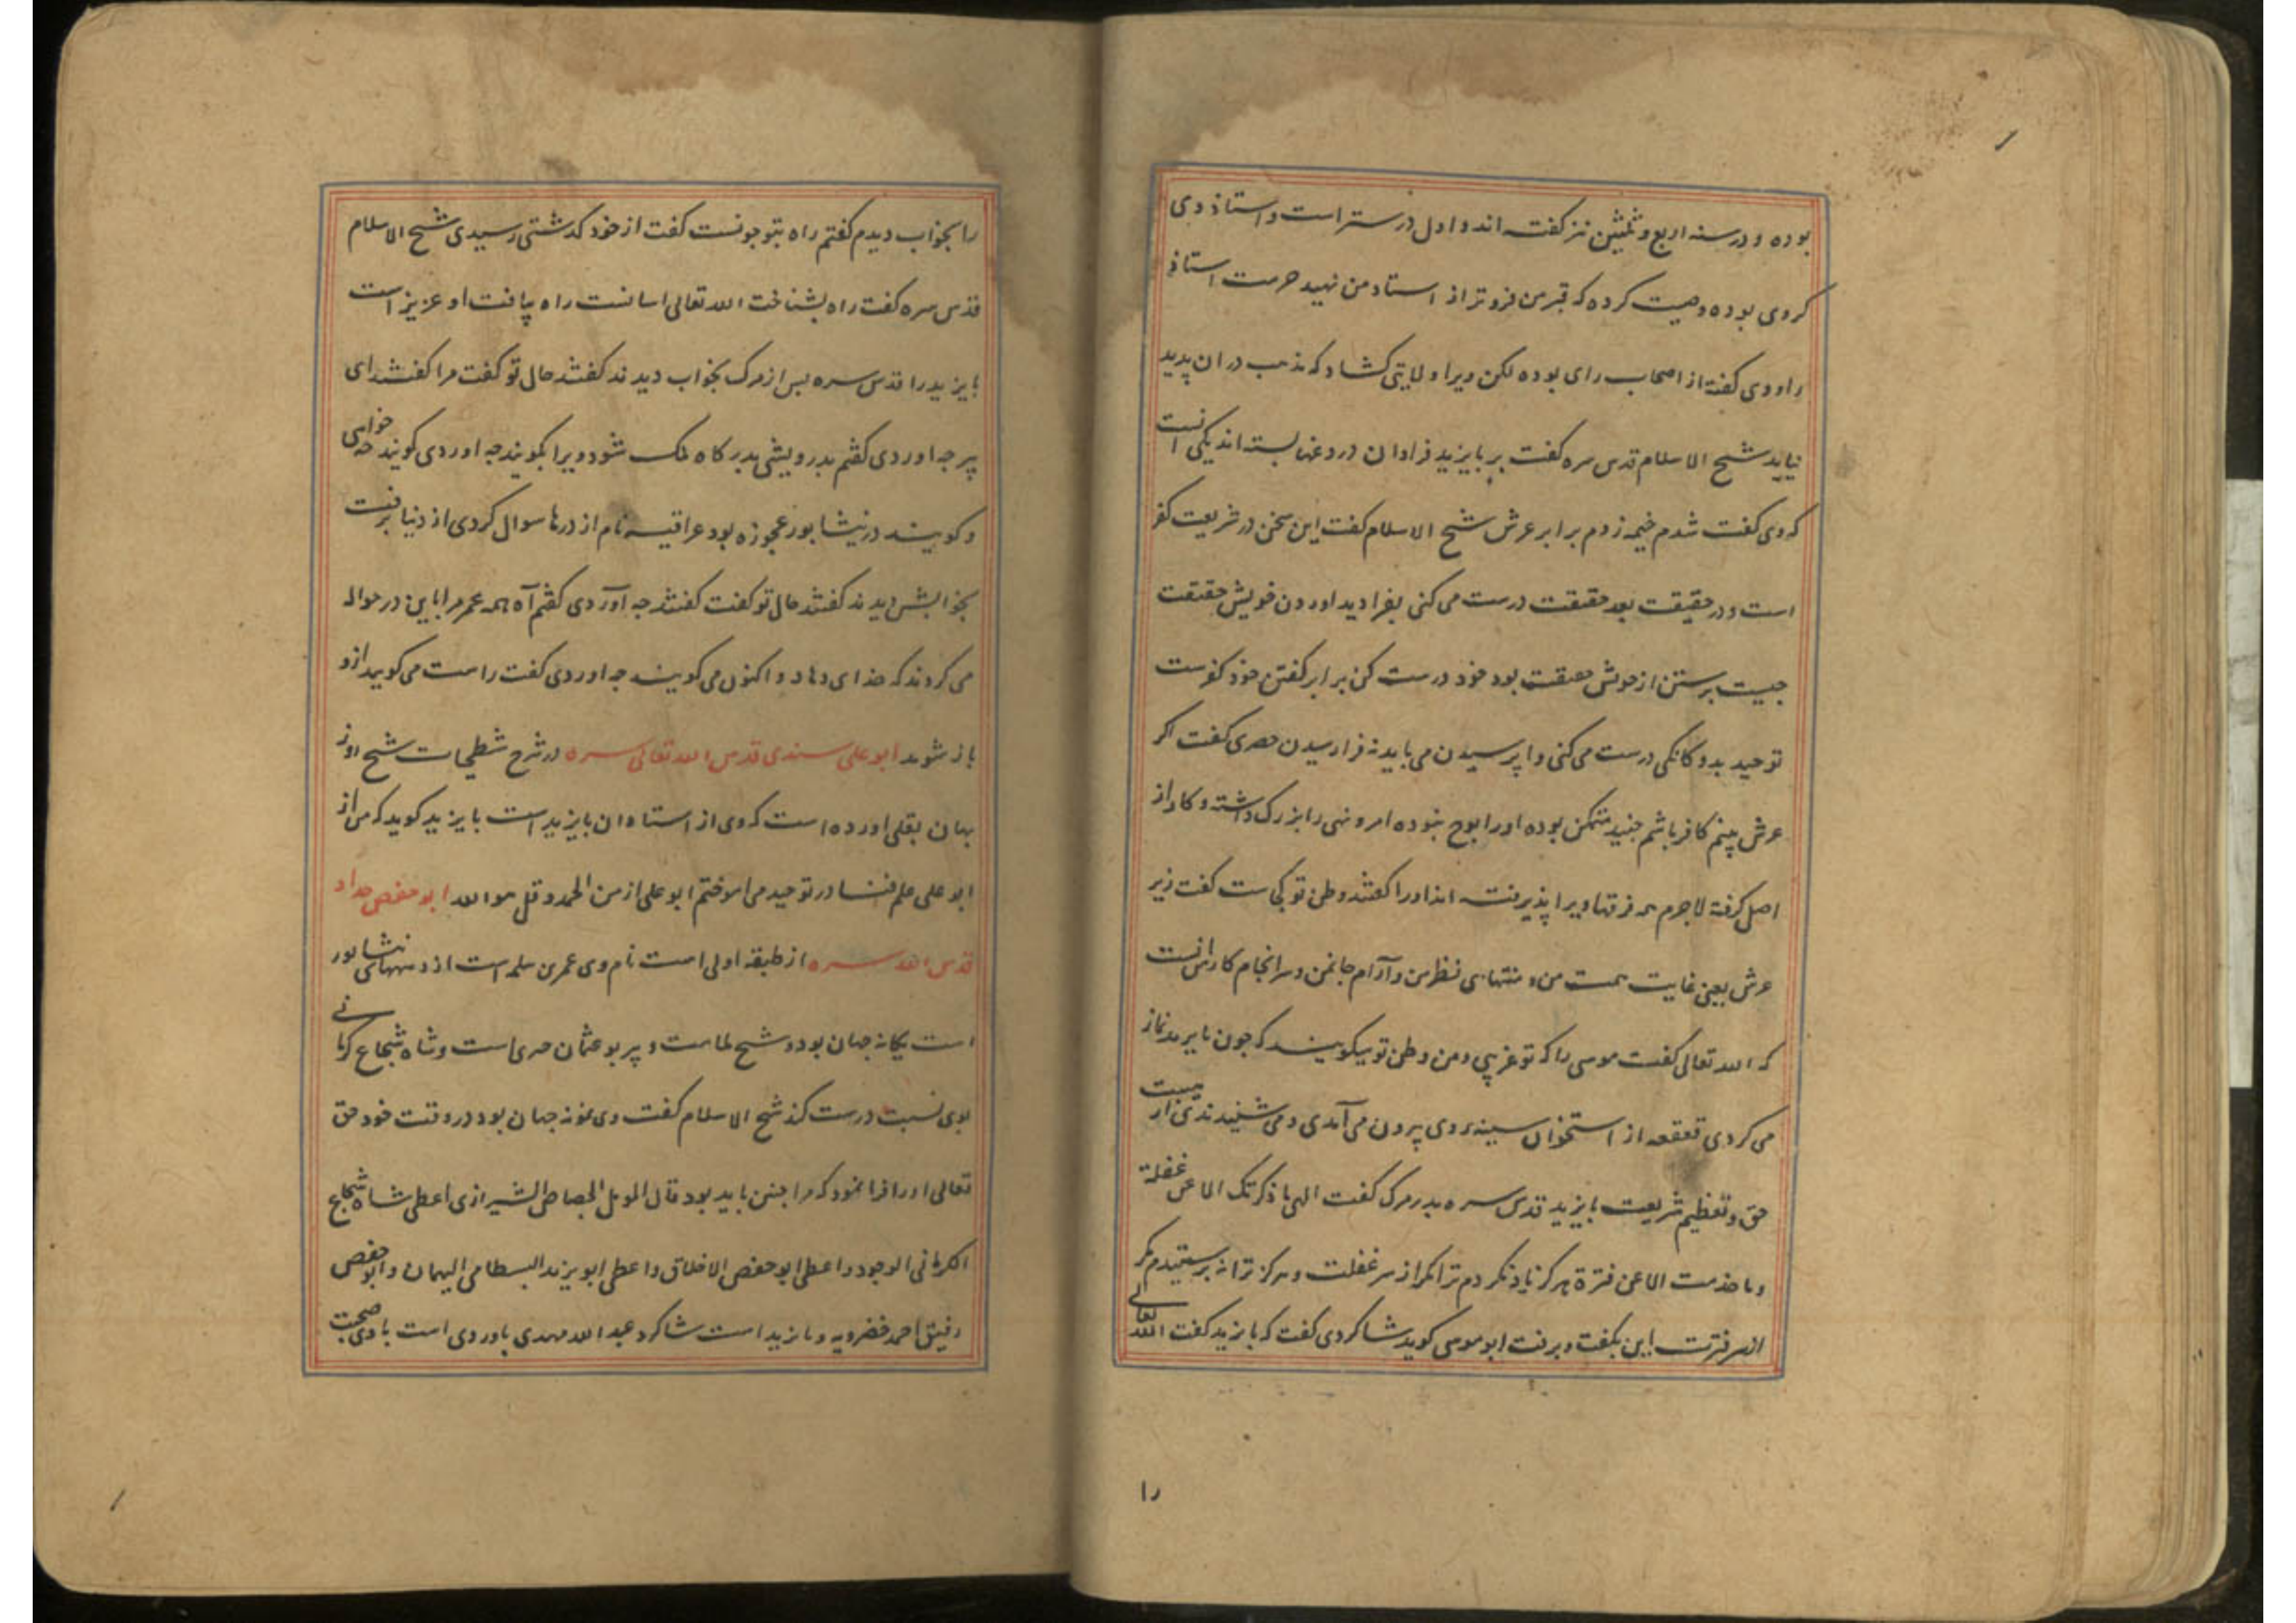 بوده و در سنه اربع و ثلثین نیز گفته اند و اول درست تر است و استاذ وی
کردی بوده وصیت کرده که قبر من فروتر از استاد من نهید حرمت استاذ
را و وی گفته از اصحاب رای بوده لکن ویرا ولایتی کشاد که مذهب در ان پدید
نیاید شیخ الاسلام قدس سره گفت بر بایزید فراوان دروغها بسته اند یکی انست
که وی گفت شدم خیمه زدم برابر عرش شیخ الاسلام گفت این سخن در شریعت کفر
است و در حقیقت بعد حقیقت درست می کنی بفرا دید اوردن خویش حقیقت
چیست برستن از خویش حقیقت بود خود درست کن برابر گفتن خود کفرست
توحید بدوگانگی درست می کنی وا پرسیدن می باید نه فرا رسیدن حصری گفت اگر
عرش بینم کافر باشم جنید متمکن بوده او را بوح نبوده امر و نهی را بزرگ داشته و کار از
اصل گرفته لاجرم همه فرقها ویرا پذیرفته اند او را گفتند وطن تو کجاست گفت زیر
عرش یعنی غایت همت من و منتهای نظر من و آرام جان من و سرانجام کار من انست
که الله تعالی گفت موسی را که تو غریبی و من وطن تو میگویند که چون بایزید نماز
می کردی قعقعه از استخوان سینه وی بیرون می آمدی و می شنیدندی از هیبت
حق و تعظیم شریعت بایزید قدس سره بدر مرگ گفت الهی ما ذکرتک الا عن غفلة
و ما خدمت الا عن فترة هرگز یاد نکردم ترا مگر از سر غفلت و هرگز ترا نه پرستیدم مگر
از سر فترت این بگفت و برفت ابو موسی گوید شاگرد وی گفت که بایزید گفت الله تعالی
را
را بخواب دیدم گفتم راه بتو چونست گفت از خود گذشتی رسیدی شیخ الاسلام
قدس سره گفت راه بشناخت الله تعالی اسانست راه بیافت او عزیز است
بایزید را قدس سره پس از مرگ بخواب دیدند گفتند حال تو گفت مرا گفتند ای
پیر چه اوردی گفتم درویشی بدرگاه ملک شود ویرا نگویند چه اوردی گویند چه خواهی
و گویند در نیشابور عجوزه بود عراقیه نام از درها سوال کردی از دنیا برفت
بخوابش دیدند گفتند حال تو گفت گفتند چه آوردی گفتم آه همه عمر مرا باین در حواله
می کردند که خدای دهاد و اکنون می گویند چه اوردی گفت راست می گوید ازو
باز شوید ابو علی سندی قدس الله تعالی سره در شرح شطحیات شیخ روز
بهان بقلی اورده است که وی از استادان بایزید است بایزید گوید که من از
ابو علی علم فنا در توحید می اموختم ابو علی از من الحمد و قل هو الله ابو حفص حداد
قدس الله سره از طبقه اولی است نام وی عمر بن سلمه است از دیههای نیشابور
است یگانه جهان بود و شیخ ملامت و پیر بو عثمان حیری است و شاه شجاع کرمانی
بوی نسبت درست کند شیخ الاسلام گفت وی نمونه جهان بود در وقت خود حق
تعالی او را فرا نمود که مرا چنین باید بود قال المومل الجصاص الشیرازی اعطی شاه شجاع
الکرمانی الوجود و اعطی ابو حفص الاخلاق و اعطی ابو یزید البسطامی الهیمان و ابو حفص
رفیق احمد خضرویه و بایزید است شاگرد عبد الله مهدی باوردی است با وی صحبت